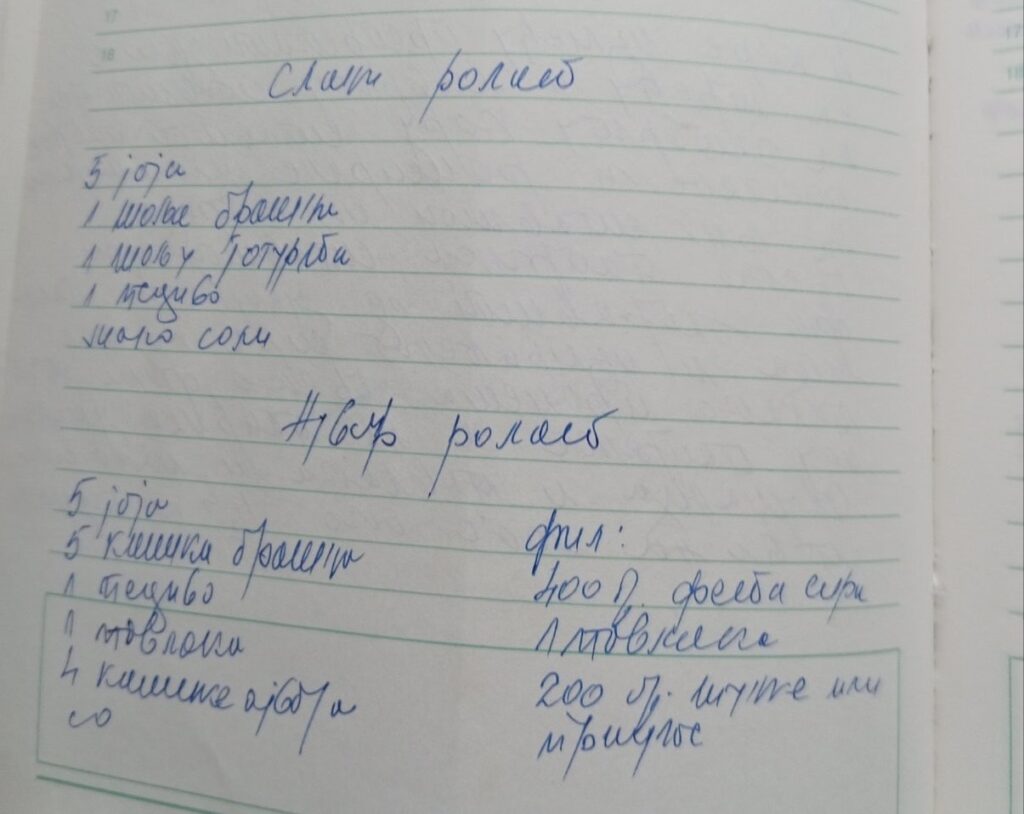 17
18
Слани ролат
5 јаја
1 шоља брашна
1 шољу јогурта
1 пециво
мало соли
Ајвар ролат
5 јаја
5 кашика брашна
1 пециво
1 павлака
4 кашике ајвара
со
фил:
400 гр. фета сира
1 павлака
200 гр. шунке или